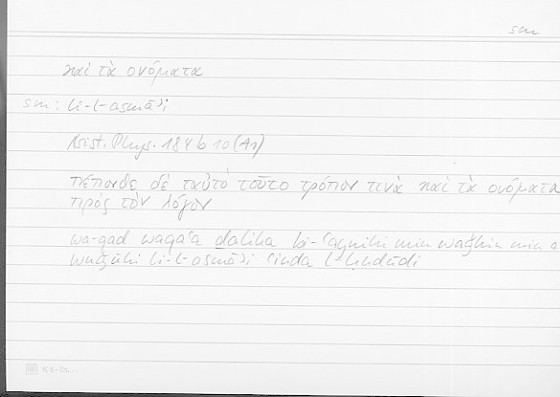 sm
καὶ τὰ ονόματα
sm: li-l-asmāʾi
Arist. Phys. 184 b 10 (A1)
πέπονθε δὲ ταὐτὸ τοῦτο τρόπον τινὰ καὶ τὰ ονόματα
πρὸς τὸν λόγον
wa-qad waqaʿa ḏālika bi-ʿaynihi min waǧhin min a
wuǧūhi li-l-asmāʾi ʿinda l-ḥudūdi